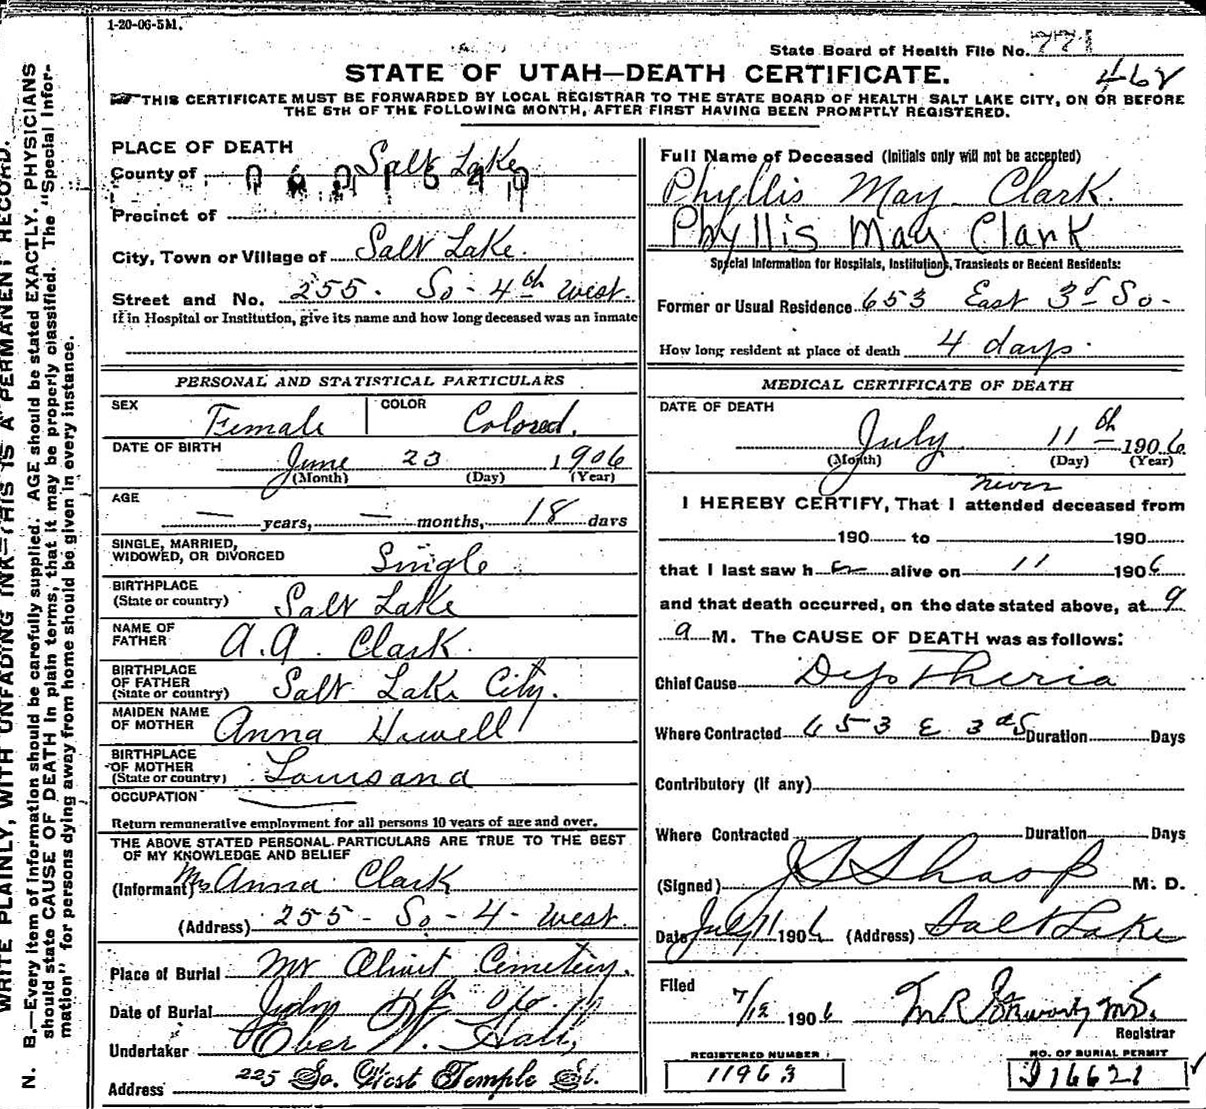 1-20-06-5M.
State Board of Health File No. 771
468
STATE OF UTAH—DEATH CERTIFICATE.
THIS CERTIFICATE MUST BE FORWARDED BY LOCAL REGISTRAR TO THE STATE BOARD OF HEALTH, SALT LAKE CITY, ON OR BEFORE
THE 5TH OF THE FOLLOWING MONTH, AFTER FIRST HAVING BEEN PROMPTLY REGISTERED.
WRITE PLAINLY, WITH UNFADING INK—THIS IS A PERMANENT RECORD.
N. B.—Every item of information should be carefully supplied. AGE should be stated EXACTLY. PHYSICIANS
should state CAUSE OF DEATH in plain terms, that it may be properly classified. The "Special Infor-
mation" for persons dying away from home should be given in every instance.
PLACE OF DEATH
County of Salt Lake
Precinct of
City, Town or Village of Salt Lake.
Street and No. 255 - So - 4th West.
If in Hospital or Institution, give its name and how long deceased was an inmate
PERSONAL AND STATISTICAL PARTICULARS
SEX Female COLOR Colored.
DATE OF BIRTH June 23 1906
(Month) (Day) (Year)
AGE — years, — months, 18 days
SINGLE, MARRIED,
WIDOWED, OR DIVORCED Single
BIRTHPLACE
(State or country) Salt Lake
NAME OF
FATHER A. A. Clark.
BIRTHPLACE
OF FATHER
(State or country) Salt Lake City.
MAIDEN NAME
OF MOTHER Anna Howell
BIRTHPLACE
OF MOTHER
(State or country) Louisana
OCCUPATION
Return remunerative employment for all persons 10 years of age and over.
THE ABOVE STATED PERSONAL PARTICULARS ARE TRUE TO THE BEST
OF MY KNOWLEDGE AND BELIEF
(Informant) Mrs Anna Clark
(Address) 255 - So - 4 - West.
Place of Burial Mt Olivet Cemetery.
Date of Burial July 06
Undertaker Eber W. Hall,
Address 225 So. West Temple St.
Full Name of Deceased (Initials only will not be accepted)
Phyllis May Clark.
Phyllis May Clark
Special Information for Hospitals, Institutions, Transients or Recent Residents:
Former or Usual Residence 653 East 3rd So -
How long resident at place of death 4 days.
MEDICAL CERTIFICATE OF DEATH
DATE OF DEATH
July 11th 1906
(Month) (Day) (Year)
never
I HEREBY CERTIFY, That I attended deceased from
190 to 190
that I last saw h er alive on 11 1906
and that death occurred, on the date stated above, at 9
a M. The CAUSE OF DEATH was as follows:
Chief Cause Diptheria
Where Contracted 653 E 3rd S Duration Days
Contributory (if any)
Where Contracted Duration Days
(Signed) M. D.
Date July 11 1906 (Address) Salt Lake
Filed 7/12 1906
Registrar
REGISTERED NUMBER
11963
NO. OF BURIAL PERMIT
D16621